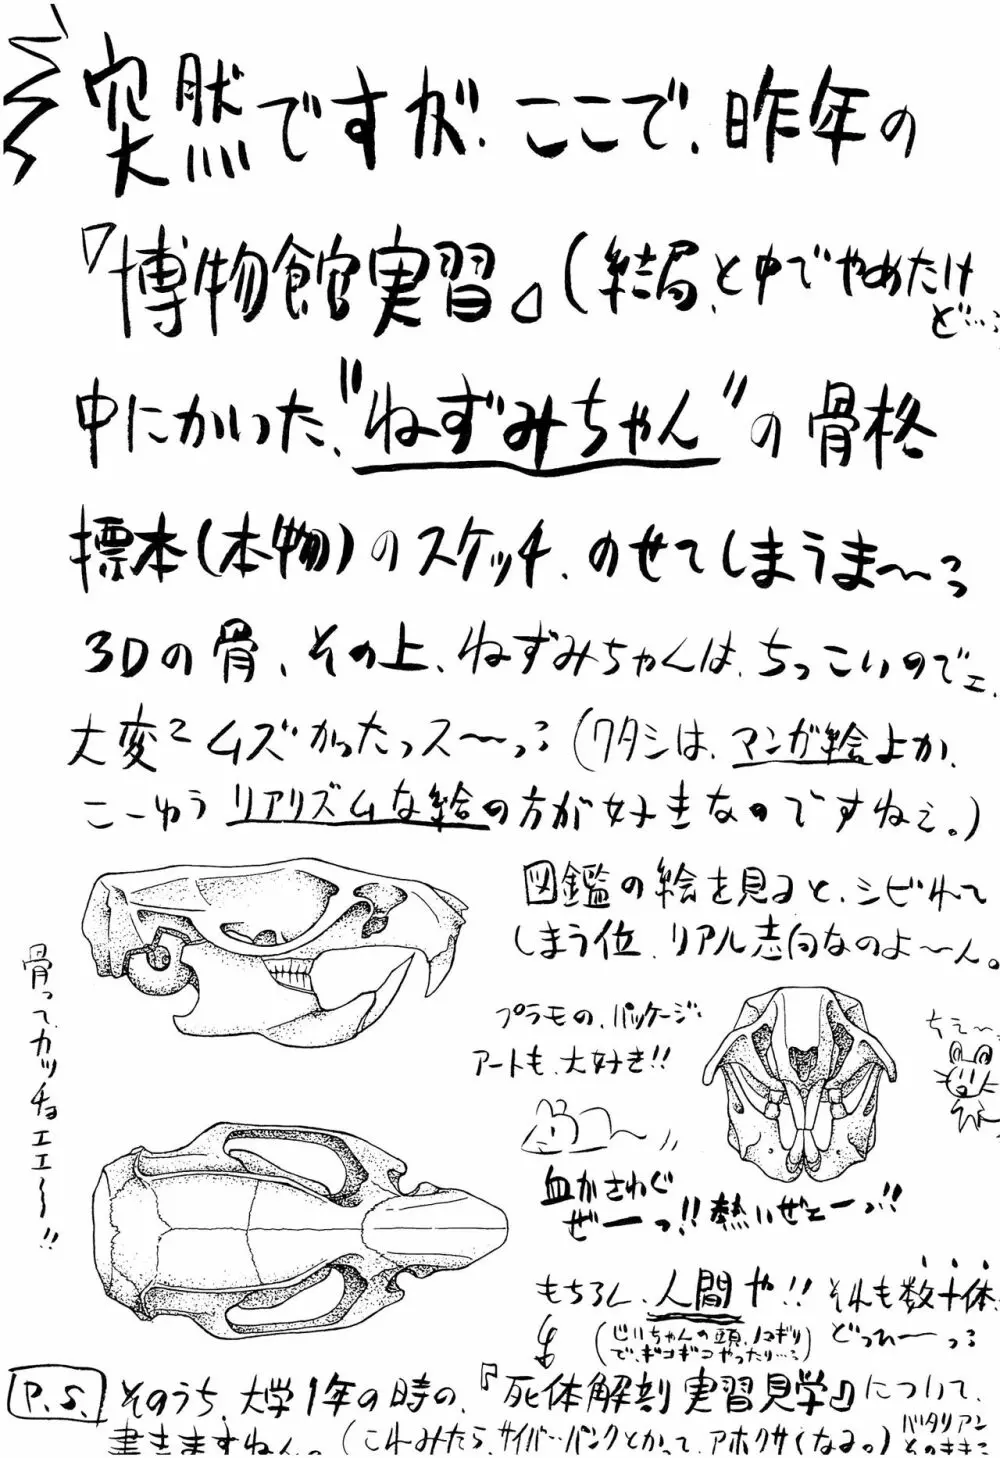 突然ですが、ここで、昨年の
『博物館実習』(結局、と中でやめたけど…
中にかいた、"ねずみちゃん"の骨格
標本(本物)のスケッチ、のせてしまうま〜っ
3Dの骨、その上、ねずみちゃんは、ちっこいのでェ、
大変ムズかったっス〜っ(ワタシは、マンガ絵よか、
こーゆうリアリズムな絵の方が好きなのですねぇ。)
図鑑の絵を見ると、シビれて
しまう位、リアル志向なのよ〜ん。
プラモの、パッケージ
アートも、大好き!!
骨って、カッチョエエ〜!!
ちえ〜
血がさわぐ
ぜーっ!!熱いぜェーっ!!
もちろん、人間や!!それも数十体
(じいちゃんの頭、ノコギリ
で、ギコギコやったり…)
どっひーっ
P.S.そのうち、大学1年の時の、『死体解剖実習見学』について、
書きますねん。(これみたら、サイバーパンクとかって、アホクサくなる。)
バタリアン
そのまま